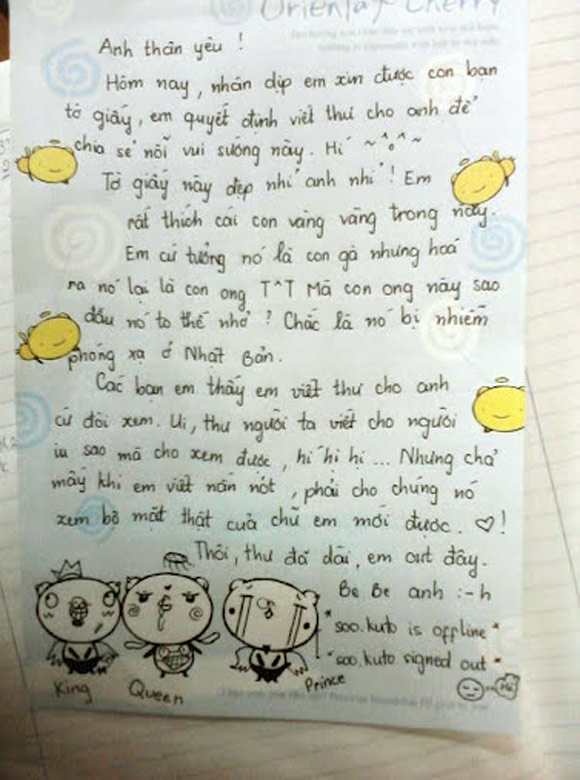 Oriental Cherry
Anh thân yêu !
Hôm nay, nhân dịp em xin được con bạn
tờ giấy, em quyết định viết thư cho anh để
chia sẻ nỗi vui sướng này. Hí ~^o^~
Tờ giấy này đẹp nhỉ anh nhỉ ! Em
rất thích cái con vàng vàng trong này.
Em cứ tưởng nó là con gà nhưng hoá
ra nó lại là con ong T^T Mà con ong này sao
đầu nó to thế nhở ? Chắc là nó bị nhiễm
phóng xạ ở Nhật Bản.
Các bạn em thấy em viết thư cho anh
cứ đòi xem. Ui, thư người ta viết cho người
iu sao mà cho xem được, hí hí hí ... Nhưng chả
mấy khi em viết nắn nót, phải cho chúng nó
xem bộ mặt thật của chữ em mới được. ♡!
Thôi, thư đã dài, em out đây.
Be Be anh :-h
* soo.kute is offline *
* soo.kute signed out *
King Queen Prince